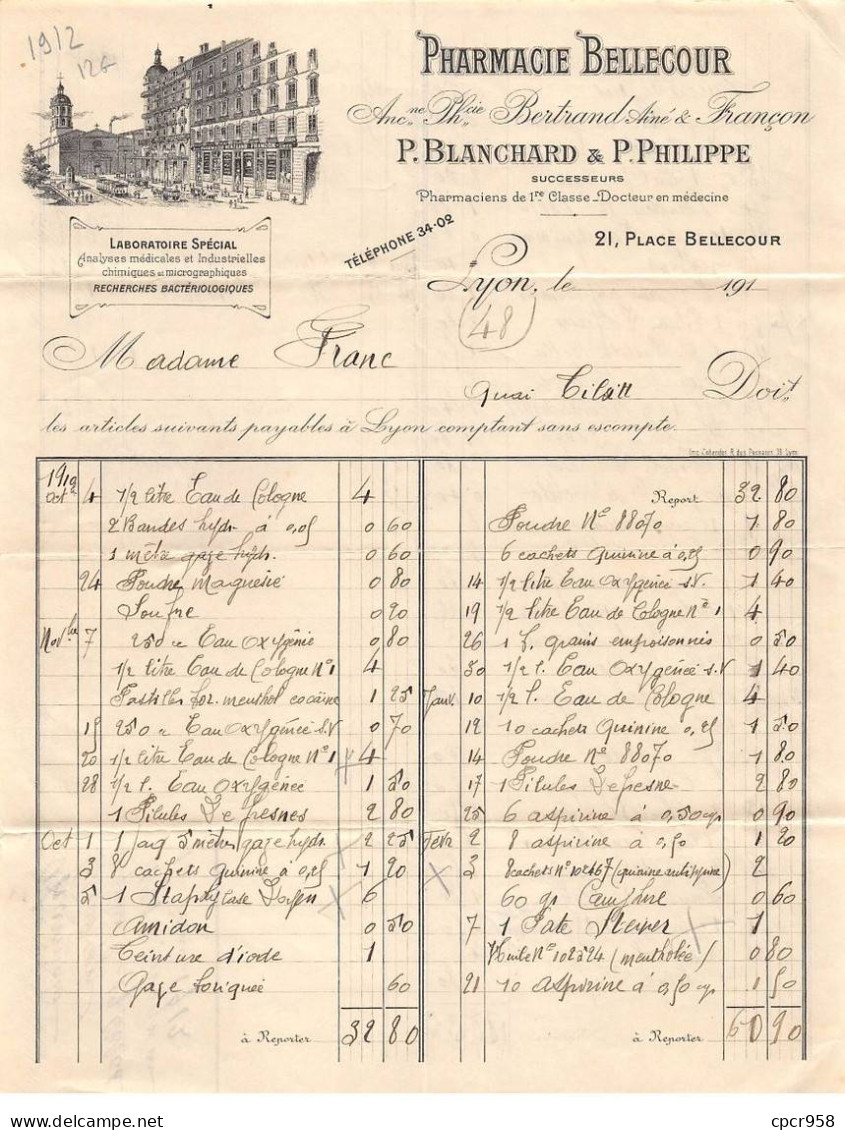 1912
126
PHARMACIE BELLECOUR
Anc.ne Ph.cie Bertrand Aîné & Françon
P. BLANCHARD & P. PHILIPPE
SUCCESSEURS
Pharmaciens de 1re Classe - Docteur en médecine
21, PLACE BELLECOUR
TÉLÉPHONE 34-02
LABORATOIRE SPÉCIAL
Analyses médicales et Industrielles
chimiques et micrographiques
RECHERCHES BACTÉRIOLOGIQUES
Lyon, le 191
(48)
Madame Franc
Quai Doit
les articles suivants payables à Lyon comptant sans escompte.
1912
Oct 4 1/2 litre Eau de Cologne 4
2 Bandes hydr. à 0,05 0 60
1 mètre gaze hydr. 0 60
24 Poudre Magnésie 0 80
Soufre 0 20
Novbre 7 250 cc Eau Oxygénée 0 80
1/2 litre Eau de Cologne N°1 4
Pastilles for. menthol cocaïne 1 25
15 250 cc Eau Oxygénée S.V 0 70
20 1/2 litre Eau de Cologne N°1 4
28 1/2 l. Eau Oxygénée 1 50
1 Pilules Defresnes 2 80
Oct 1 1 paq 5 mètres gaze hydr. 2 25
3 8 cachets Quinine à 0,25 1 20
5 1 Staphylase Doyen 6
Amidon 0 50
Teinture d'iode 1
Gaze boriquée 60
à Reporter 32 80
Report 32 80
Poudre N° 88070 1 80
6 cachets Quinine à 0,25 0 90
14 1/2 litre Eau Oxygénée S.V. 1 40
19 1/2 litre Eau de Cologne N°1 4
26 1 f. grains empoisonnés 0 50
30 1/2 l. Eau Oxygénée S.V 1 40
Janv. 10 1/2 l. Eau de Cologne 4
12 10 cachets Quinine 0,25 1 50
14 Poudre N° 88070 1 80
17 1 Pilules Defresne 2 80
25 6 aspirine à 0,50 cg 0 90
Févr 2 8 aspirine à 0,50 1 20
3 8 cachets N° 102467 (quinine antipyrine) 2
60 gr Camphre 0 60
7 1 Pate Steiner 1
Huile N° 102524 (mentholée) 0 80
21 10 aspirine à 0,50 cg 1 50
à Reporter 60 90
cpcr958